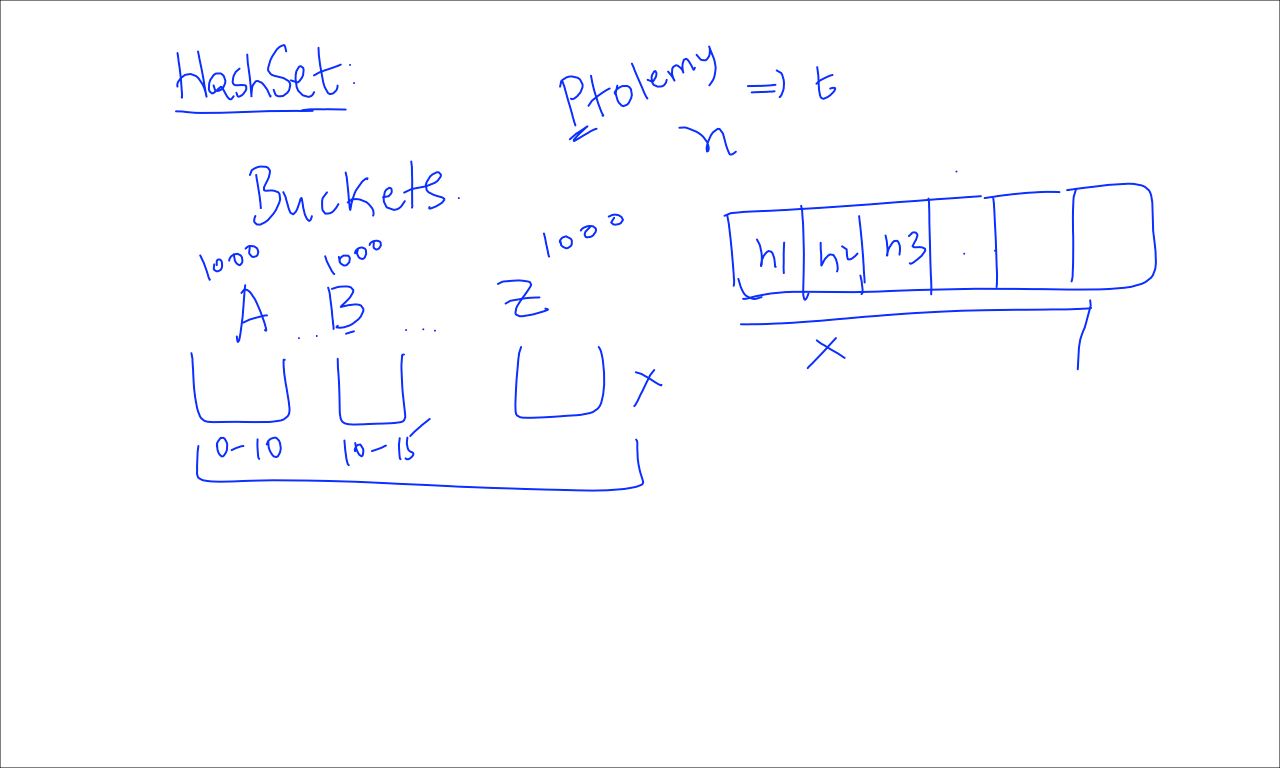 HashSet:
Ptolemy => t
n
Buckets.
1000 1000 1000
A .. B ... Z
x
0-10 10-15
h1 h2 h3 . .
x